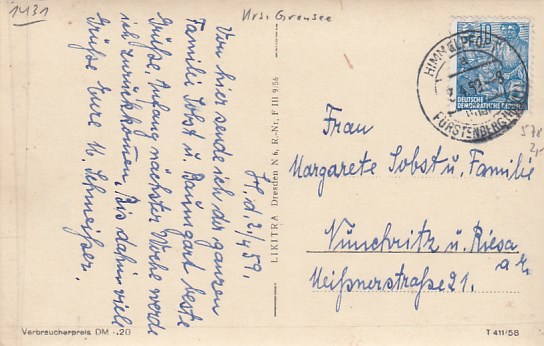 1431
Krs. Gransee
H., d. 2/4 59.
Von hier sende ich der ganzen
Familie Sobst u. Baumgart beste
Grüße. Anfang nächster Woche werde
ich zurückkommen. Bis dahin viele
Grüße Eure M. Schmeißer.
LIKITRA Dresden N 6, R.-Nr. F III 9/56
HIMMELPFORT
FÜRSTENBERG (HAVEL)
10
DEUTSCHE
DEMOKRATISCHE
Frau
Margarete Sobst u. Familie
Nünchritz u. Riesa
a. E.
Meißnerstraße 21.
Verbraucherpreis DM -.20
T 411/58